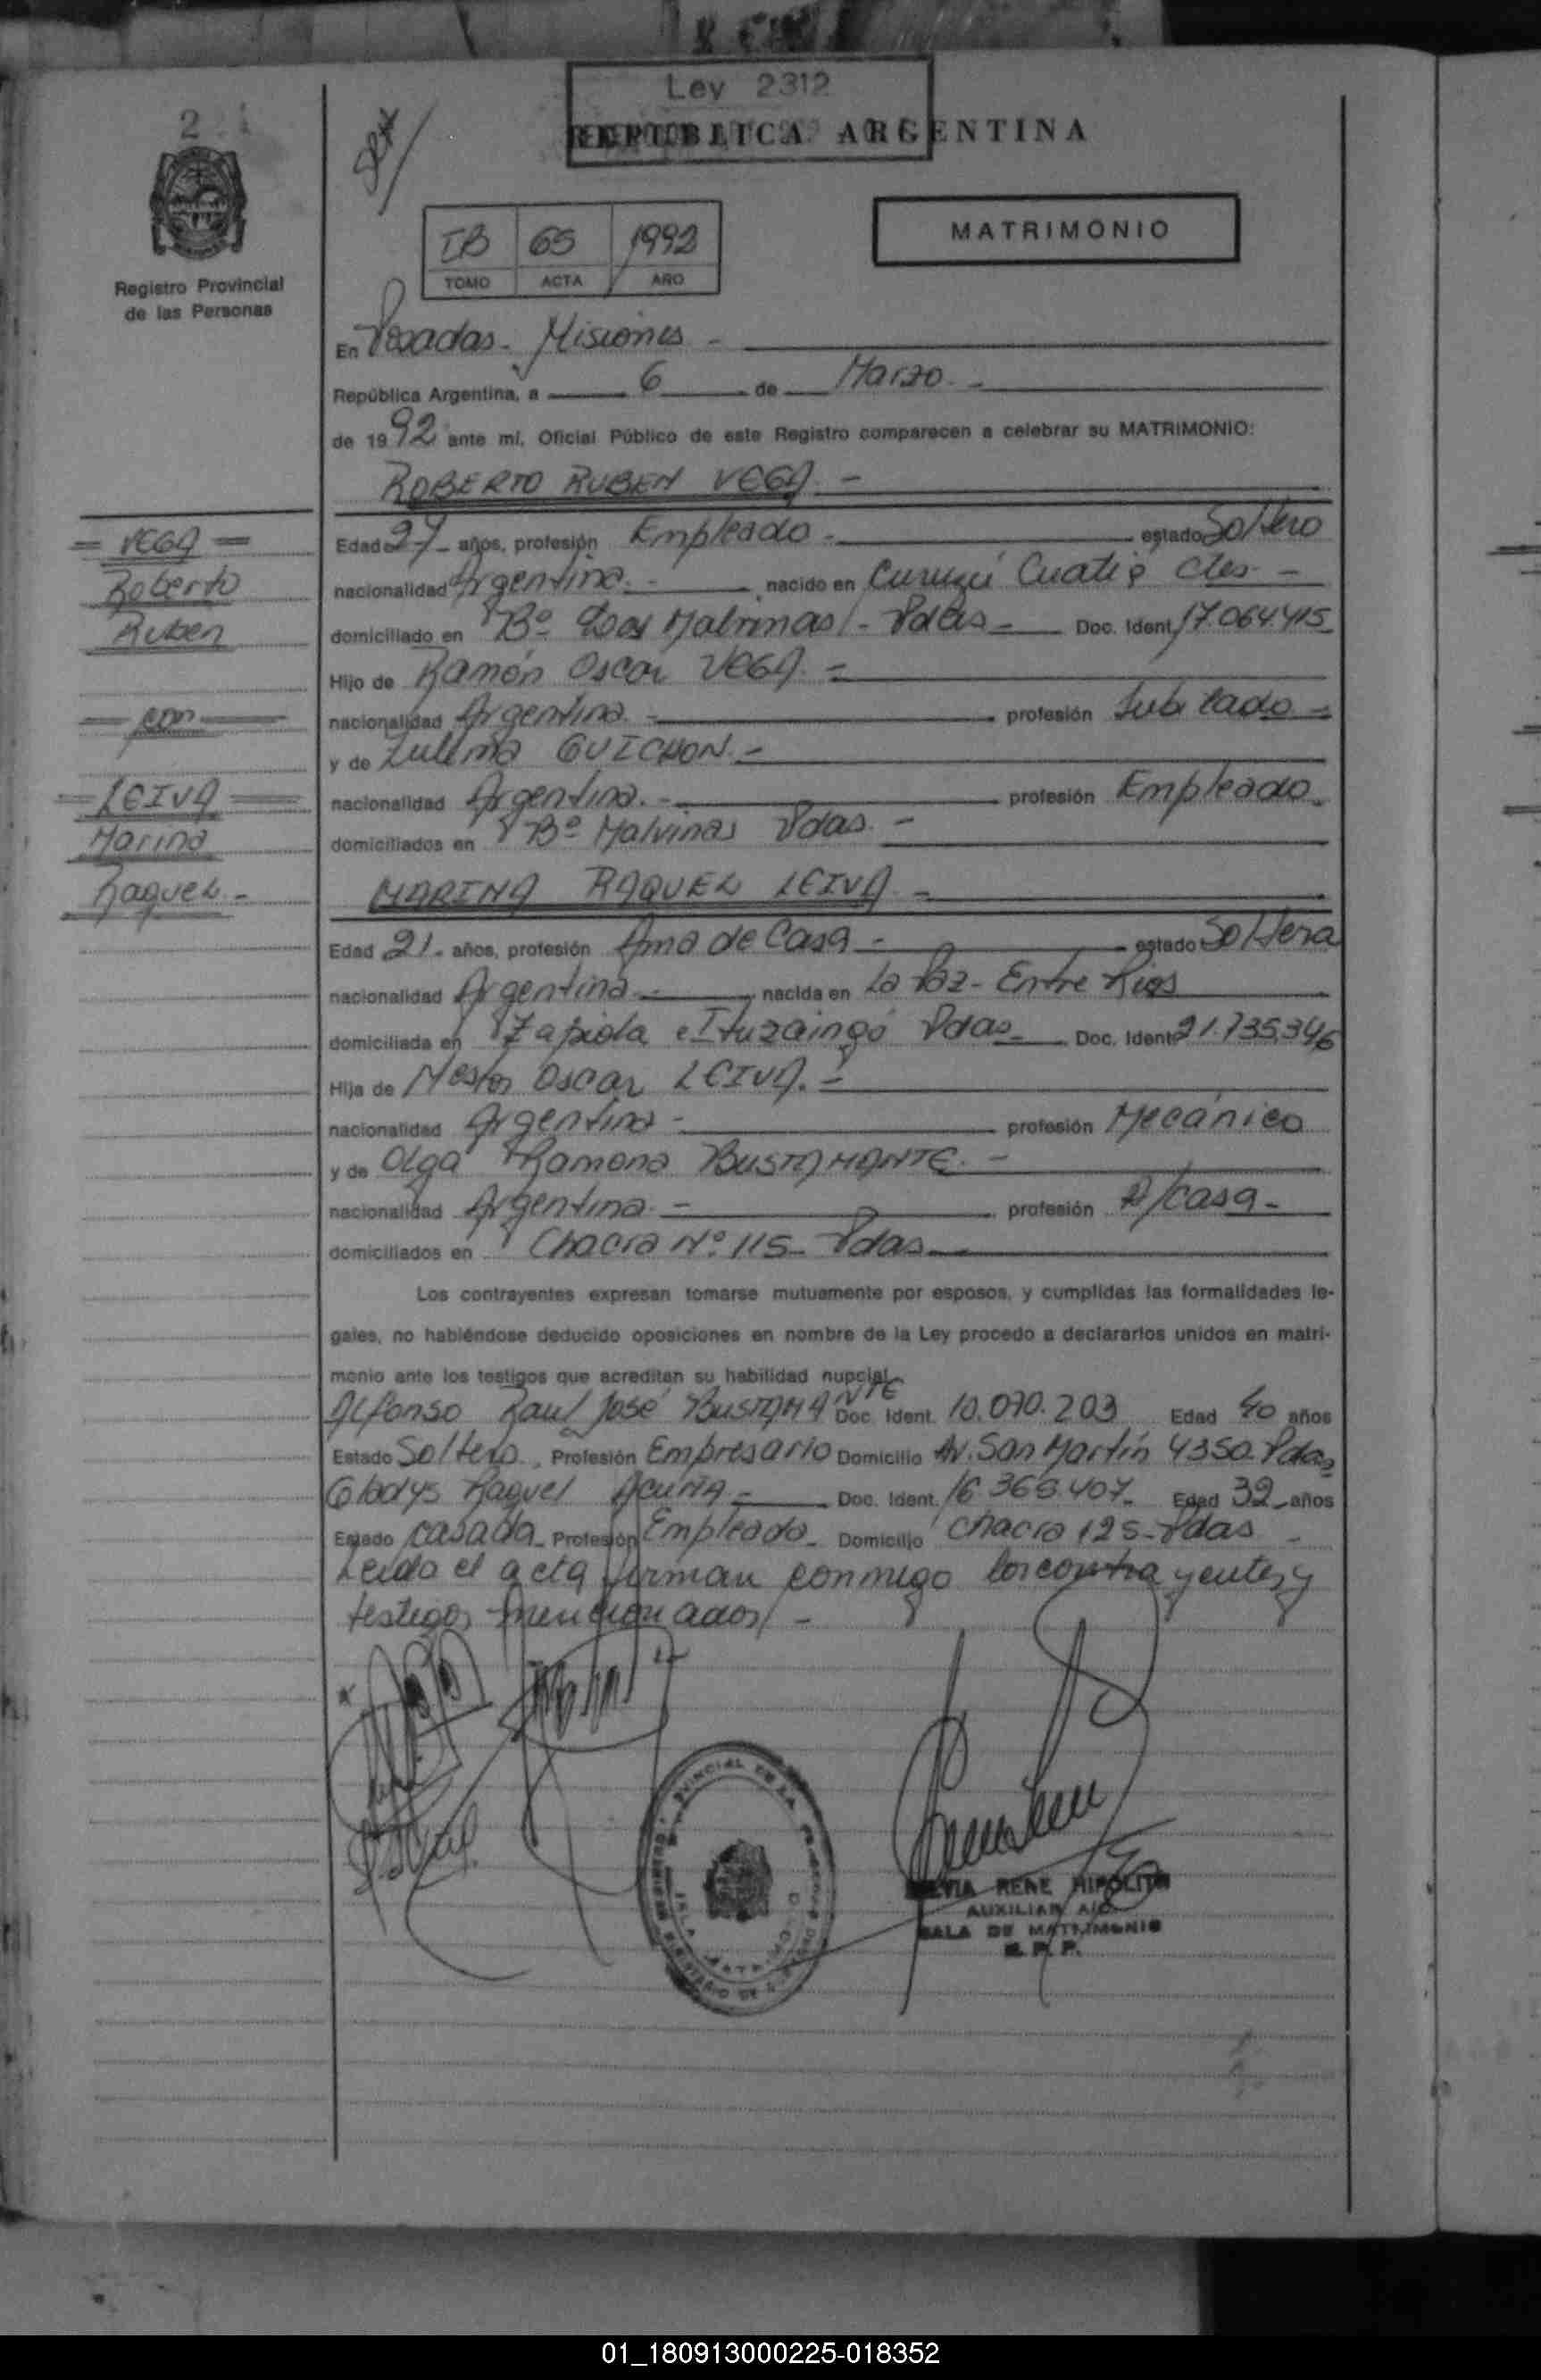 Ley 2312
REPUBLICA ARGENTINA
2
Registro Provincial
de las Personas
IB 65 1992
TOMO ACTA AÑO
MATRIMONIO
En Posadas - Misiones -
República Argentina, a 6 de Marzo. -
de 1992 ante mí, Oficial Público de este Registro comparecen a celebrar su MATRIMONIO:
ROBERTO RUBEN VEGA. -
= VEGA =
Roberto
Ruben
= con =
= LEIVA =
Marina
Raquel. -
Edad 27 - años, profesión Empleado - estado Soltero
nacionalidad Argentina. - nacido en Curuzú Cuatiá Ctes -
domiciliado en Bº Las Malvinas - Pdas - Doc. Ident. 17.064.415
Hijo de Ramón Oscar VEGA. =
nacionalidad Argentina. - profesión Jubilado -
y de Zulema GUICHON. -
nacionalidad Argentina. - profesión Empleado.
domiciliados en Bº Malvinas Pdas. -
MARINA RAQUEL LEIVA. -
Edad 21. años, profesión Ama de Casa - estado Soltera
nacionalidad Argentina - nacida en La Paz - Entre Rios
domiciliada en Zapiola e Ituzaingó Pdas - Doc. Ident. 21.735.346
Hija de Nestor Oscar LEIVA. -
nacionalidad Argentina - profesión Mecánico
y de Olga Ramona BUSTAMANTE. -
nacionalidad Argentina. - profesión A/casa -
domiciliados en Chacra Nº 115 - Pdas
Los contrayentes expresan tomarse mutuamente por esposos, y cumplidas las formalidades le-
gales, no habiéndose deducido oposiciones en nombre de la Ley procedo a declararlos unidos en matri-
monio ante los testigos que acreditan su habilidad nupcial
Alfonso Raul José BUSTAMANTE Doc. Ident. 10.070.203 Edad 40 años
Estado Soltero. Profesión Empresario Domicilio Av. San Martín 4350 Pdas
Gladys Raquel Acuña - Doc. Ident. 16.366.407. Edad 32 - años
Estado casada - Profesión Empleada - Domicilio chacra 125 - Pdas -
Leida el acta firman conmigo los contrayentes y
testigos mencionados -
SILVIA RENE HIPOLITO
AUXILIAR A/C
SALA DE MATRIMONIO
R. P. P.
01_180913000225-018352